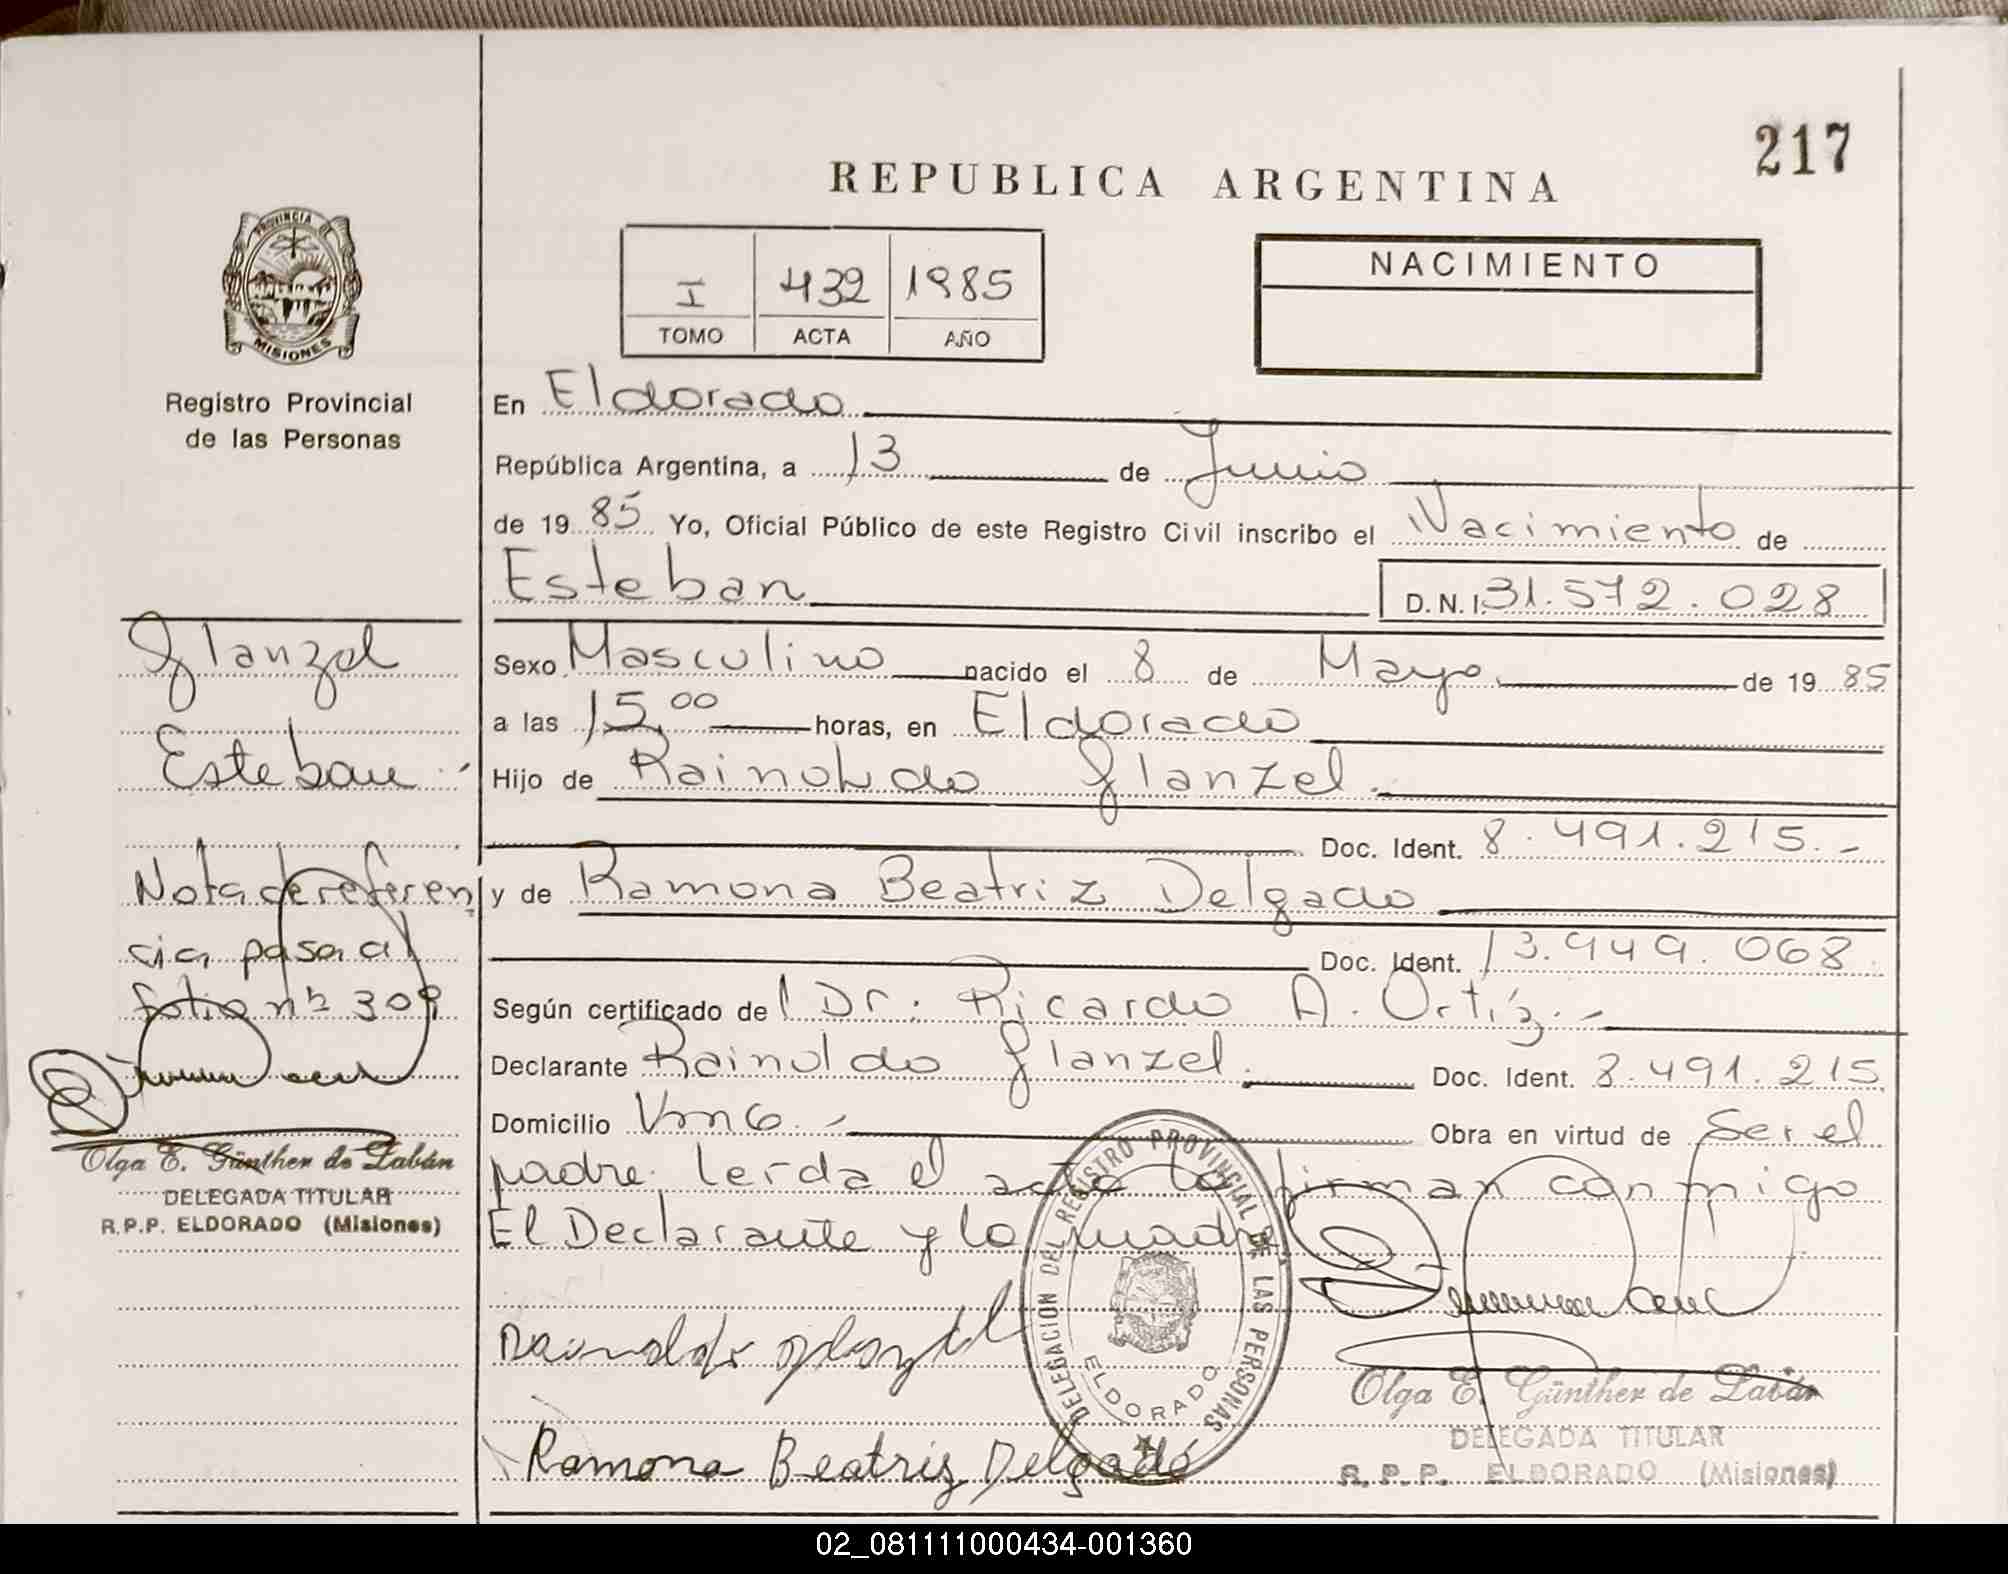 217
REPUBLICA ARGENTINA
PROVINCIA DE
MISIONES
Registro Provincial
de las Personas
I 432 1985
TOMO ACTA AÑO
NACIMIENTO
En Eldorado
República Argentina, a 13 de Junio
de 1985 Yo, Oficial Público de este Registro Civil inscribo el Nacimiento de
Esteban D.N.I. 31.572.028
Sexo Masculino nacido el 8 de Mayo de 1985
a las 15,00 horas, en Eldorado
Hijo de Rainoldo Glanzel.
Doc. Ident. 8.491.215.-
y de Ramona Beatriz Delgado
Doc. Ident. 13.949.068
Según certificado del Dr. Ricardo A. Ortíz.-
Declarante Rainoldo Glanzel. Doc. Ident. 8.491.215
Domicilio Obra en virtud de Ser el
padre. Leida el acta la firman conmigo
El Declarante y la madre
Rainoldo Glanzel
Ramona Beatriz Delgado
DELEGACION DEL REGISTRO PROVINCIAL DE LAS PERSONAS
ELDORADO
Olga E. Günther de Labán
DELEGADA TITULAR
R.P.P. ELDORADO (Misiones)
Glanzel
Esteban.-
Nota de referen
cia pasa al
folio nº 309
Olga E. Günther de Labán
DELEGADA TITULAR
R.P.P. ELDORADO (Misiones)
02_081111000434-001360